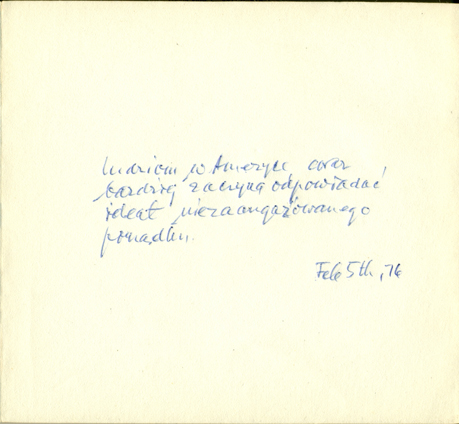 ludziom w Ameryce coraz
bardziej zaczyna odpowiadać
ideał niezaangażowanego
porządku.
Feb 5th, 76